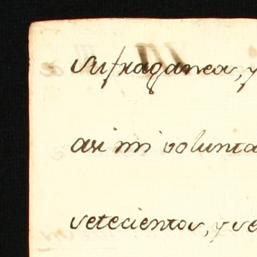 sufraganeos, y
asi mi volunta
setecientos, y se